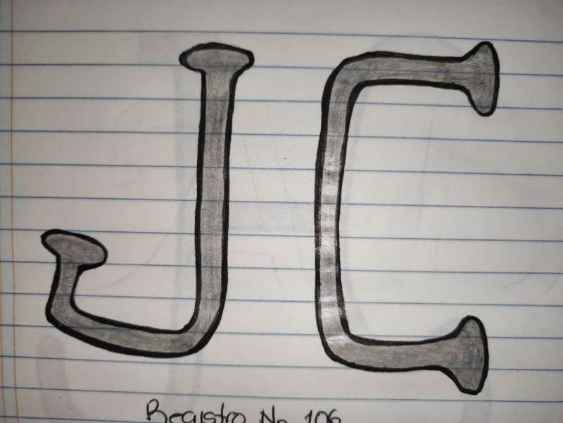 JC
Registro No 106